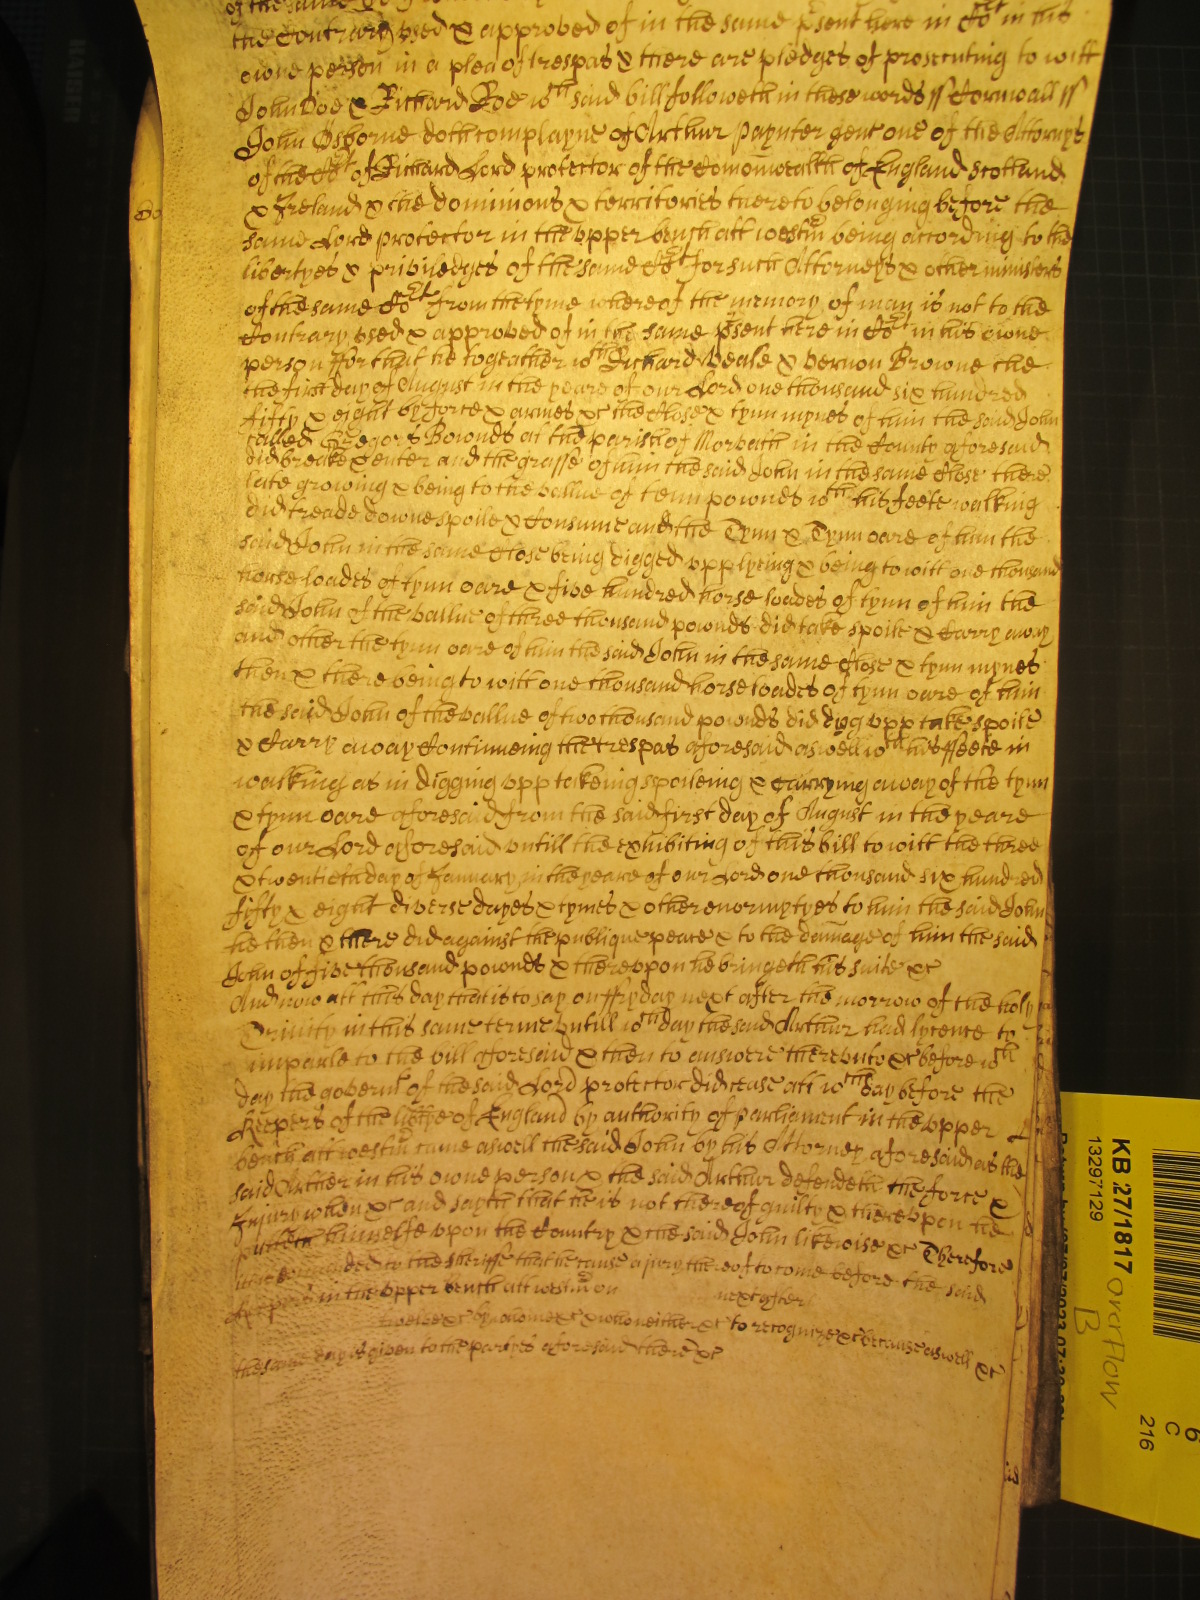 the Contrary vsed & approved of in the same psent here in Cort in his
owne person in a plea of trespas & there are pledges of prosecuting to witt
John Doe & Richard Roe wth said bill followeth in these words ss Cornwall ss
John Osborne doth complayne of Arthur Paynter gent one of the Attornys
of the Cort of Richard Lord protector of the Comonwealth of England Scotland
& Ireland & the dominions & territories thereto belonging before the
same Lord protector in the vpper bench att westm being according to the
libertyes & priviledges of the same Cort for such Attorneys & other ministers
of the same Cort from the tyme whereof the memory of man is not to the
Contrary vsed & approved of in the same psent here in Cort in his owne
person ffor that he togeather wth Richard Veale & Vernon Browne the
the first day of August in the yeare of our Lord one thousand six hundred
fifty & eight by force & armes &c the Close & tynn mynes of him the said John
called Gregors Bownds at the parish of Morvath in the County aforesaid
did breake & enter and the grasse of him the said John in the same Close there
late growing & being to the vallue of tenn pownds wth his feete walking
did treade downe spoile & Consume and the Tynn & Tynn oare of him the
said John in the same Close being digged vpp lyeing & being to witt one thousand
horse loades of tynn oare & five hundred horse loades of tynn of him the
said John of the vallue of three thousand pownds did take spoile & Carry away
and other the tynn oare of him the said John in the same Close & tynn mynes
then & there being to witt one thousand horse loades of tynn oare of him
the said John of the vallue of two thousand pownds did digg vpp take spoile
& Carry away Continueing the trespas aforesaid aswell wth his ffeete in
walking as in digging vpp takeing spoileing & Carrying away of the tynn
& tynn oare aforesaid from the said first day of August in the yeare
of our Lord aforesaid vntill the exhibiting of this bill to witt the three
& twentieth day of January in the yeare of our Lord one thousand six hundred
fifty & eight diverse dayes & tymes & other enormytyes to him the said John
he then & there did against the publique peace & to the damage of him the said
John of five thousand pownds & therevpon he bringeth his suite &c
And now att this day that is to say on ffryday next after the morrow of the holy
Trinity in this same terme vntill wth day the said Arthur had lycence to
imparle to the bill aforesaid & then to answere therevnto &c before wth
day the governt of the said Lord protector did cease att wth day before the
Keepers of the libtye of England by authority of parliament in the vpper
bench att westm came aswell the said John by his Attorney aforesaid as the
said Arther in his owne person & the said Arthur defendeth the force &
Injury when &c and sayth that he is not thereof guilty & therevpon he
putteth himselfe vpon the Country & the said John likewise &c Therefore
it is Comanded to the sheriffe that he cause a jury thereof to come before the said
Keepers in the vpper bench att westm on next after
twelve &c by whome &c & who neither &c to recognize &c because aswell &c
the same day is given to the partyes aforesaid there &c
KB 27/1817
13297129
overflow
B
6
C
216